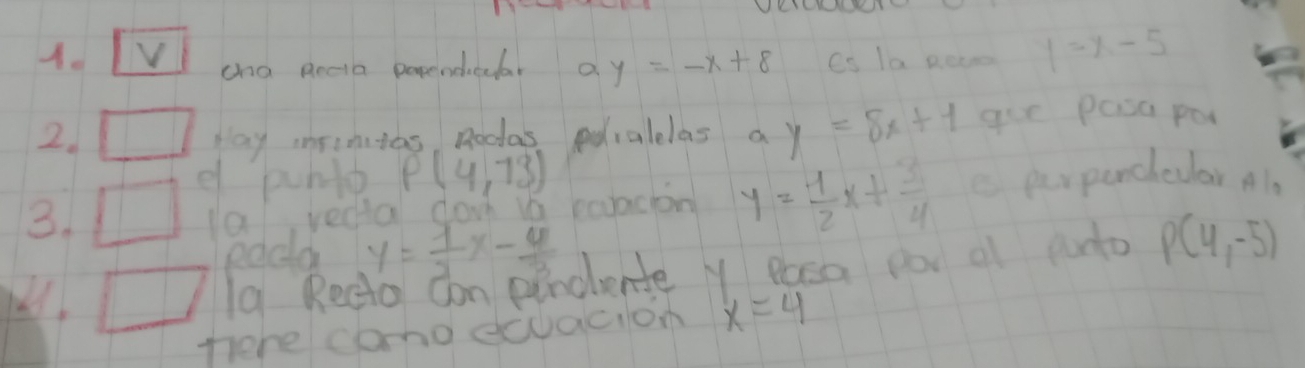 1. V una recta perpendicular a y = -x+8 es la recta y=x-5
2. Hay infinitas rectas a y = 5x+1 que pasa por
el punto P(4,73)
3. la recta con la y = 1/2 x + 3/4 perpendicular
y =
4. la Recta con pendiente y pasa por el punto P(4,-5)
tiene como ecuación x=4